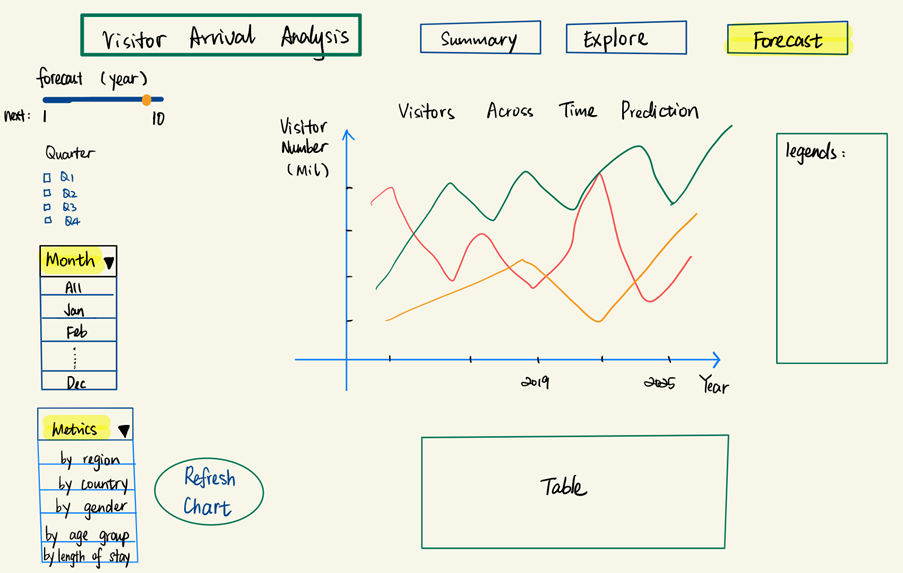 Visitor Arrival Analysis
Summary
Explore
Forecast
forecast (year)
next: 1 10
Quarter
Q1
Q2
Q3
Q4
Month
All
Jan
Feb
Dec
Metrics
by region
by country
by gender
by age group
by length of stay
Refresh
Chart
Visitors Across Time Prediction
Visitor
Number
(Mil)
2019
2025
Year
legends:
Table